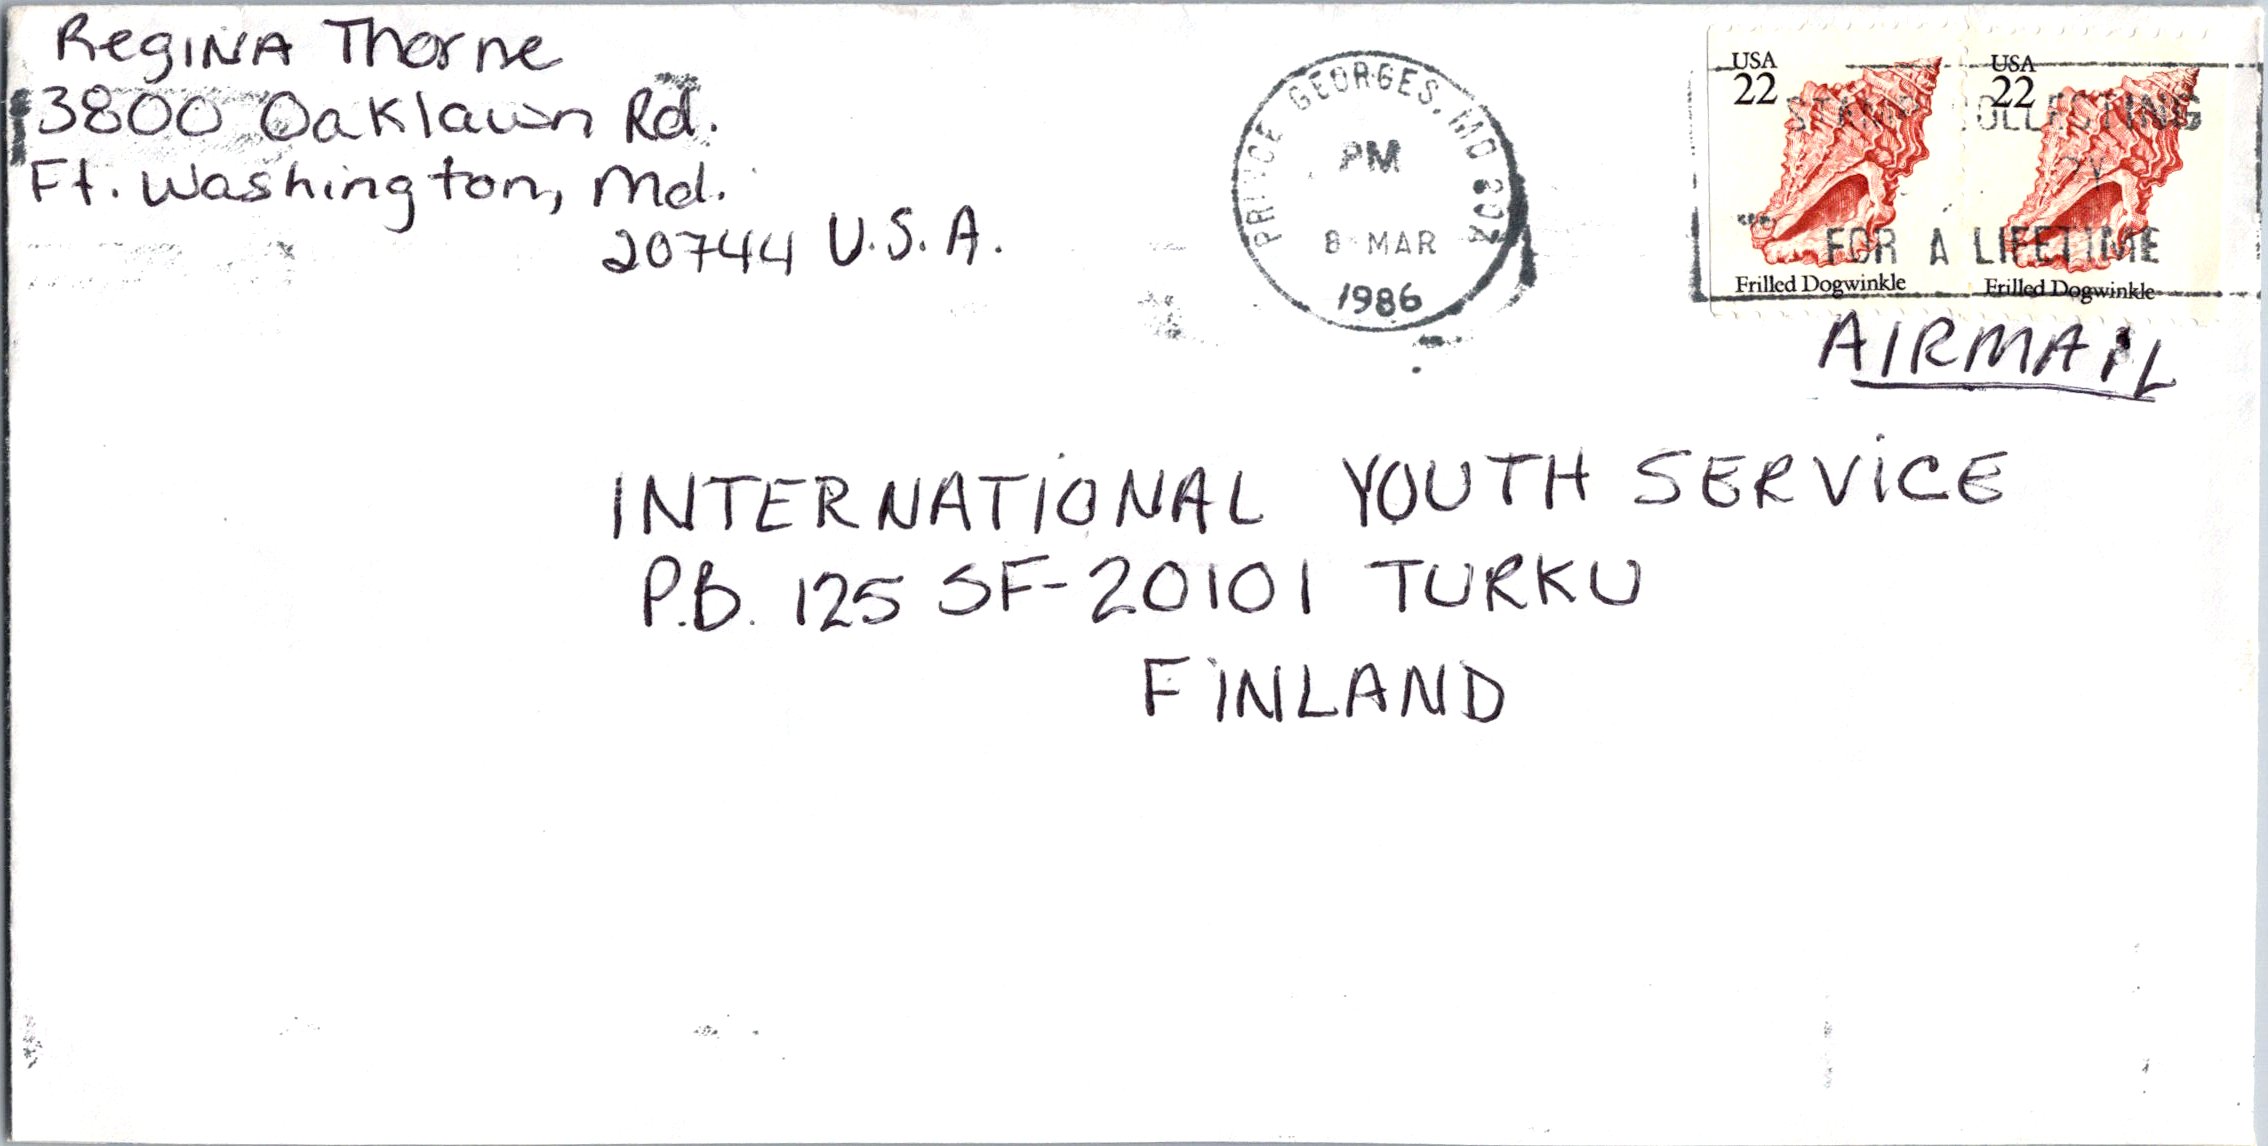 Regina Thorne
3800 Oaklawn Rd.
Ft. Washington, Md.
20744 U.S.A.
PRINCE GEORGES, MD 207
PM
8 MAR
1986
USA
22
Frilled Dogwinkle
USA
22
Frilled Dogwinkle
STAMP COLLECTING
FOR A LIFETIME
AIRMAIL
INTERNATIONAL YOUTH SERVICE
P.B. 125 SF-20101 TURKU
FINLAND